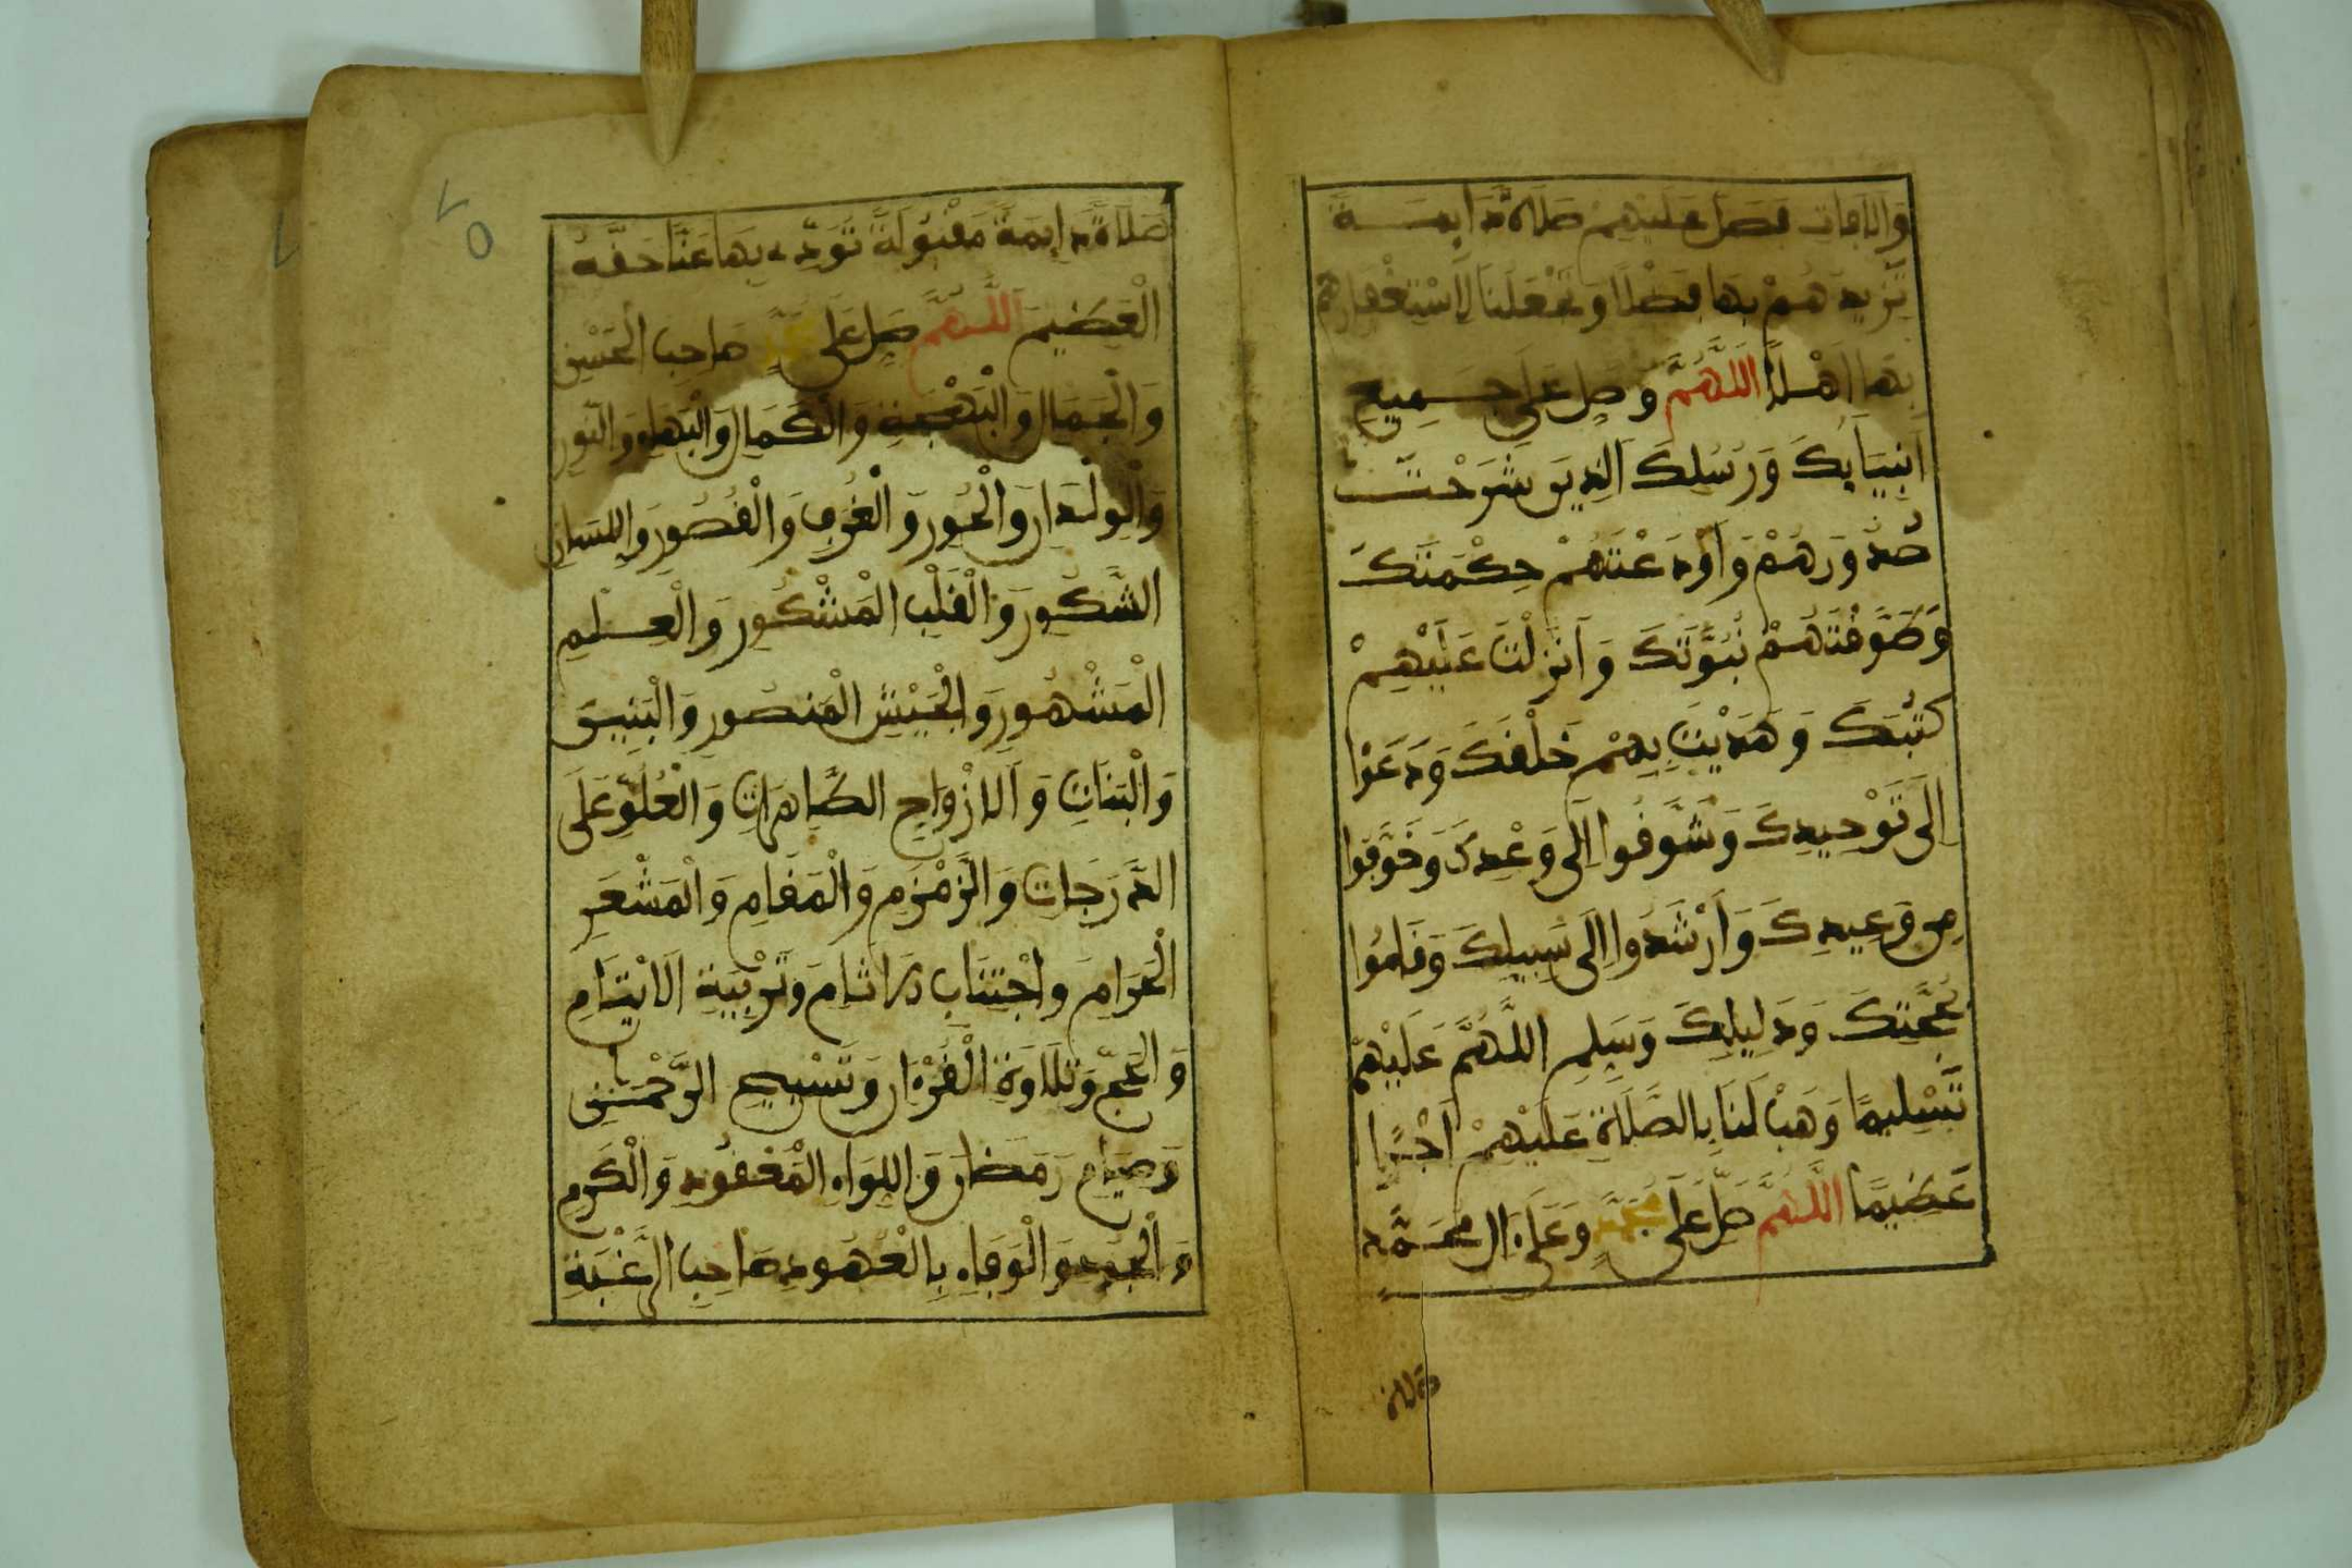 وَالاَوْفَاتِ فَصَلِّ عَلَيْهِمْ صَلَاةً دَايِمَةً
تَزِيدُهُمْ بِهَا فَضْلاً وَتَجْعَلُنَا لِاسْتِغْفَارِهِمْ
بِهَا أَهْلاً اللَّهُمَّ وَصَلِّ عَلَى جَمِيعِ
أَنْبِيَايِكَ وَرُسُلِكَ الَّذِينَ شَرَحْتَ
صُدُورَهُمْ وَأَوْدَعْتَهُمْ حِكْمَتَكَ
وَطَوَّقْتَهُمْ نُبُوَّتَكَ وَأَنْزَلْتَ عَلَيْهِمْ
كُتُبَكَ وَهَدَيْتَ بِهِمْ خَلْقَكَ وَدَعَوْا
إِلَى تَوْحِيدِكَ وَشَوَّقُوا إِلَى وَعْدِكَ وَخَوَّفُوا
مِن وَعِيدِكَ وَأَرْشَدُوا إِلَى سَبِيلِكَ وَقَامُوا
بِحُجَّتِكَ وَدَلِيلِكَ وَسَلِّمِ اللَّهُمَّ عَلَيْهِمْ
تَسْلِيمًا وَهَبْ لَنَا بِالصَّلَاةِ عَلَيْهِمْ أَجْرًا
عَظِيمًا اللَّهُمَّ صَلِّ عَلَى مُحَمَّدٍ وَعَلَى ءَالِ مُحَمَّدٍ
صلاة
٧٥
صَلَاةً دَايِمَةً مَقْبُولَةً تُوَدِّي بِهَا عَنَّا حَقَّهُ
الْعَظِيمَ اللَّهُمَّ صَلِّ عَلَى مُحَمَّدٍ صَاحِبِ الْحُسْنِ
وَالْجَمَالِ وَالْبَهْجَةِ وَالْكَمَالِ وَالْبَهَاءِ وَالنُّورِ
وَالْوِلْدَانِ وَالْحُورِ وَالْغُرَفِ وَالْقُصُورِ وَاللِّسَانِ
الشَّكُورِ وَالْقَلْبِ الْمَشْكُورِ وَالْعِلْمِ
الْمَشْهُورِ وَالْجَيْشِ الْمَنْصُورِ وَالْبَنِينَ
وَالْبَنَاتِ وَالْأَزْوَاجِ الطَّاهِرَاتِ وَالْعُلُوِّ عَلَى
الدَّرَجَاتِ وَالزَّمْزَمِ وَالْمَقَامِ وَالْمَشْعَرِ
الْحَرَامِ وَاجْتِنَابِ الْآثَامِ وَتَرْبِيَةِ الْأَيْتَامِ
وَالْحَجِّ وَتِلَاوَةِ الْقُرْءَانِ وَتَسْبِيحِ الرَّحْمَٰنِ
وَصِيَامِ رَمَضَانَ وَاللِّوَاءِ الْمَعْقُودِ وَالْكَرَمِ
وَالْجُودِ وَالْوَفَاءِ بِالْعُهُودِ صَاحِبِ الرَّغْبَةِ